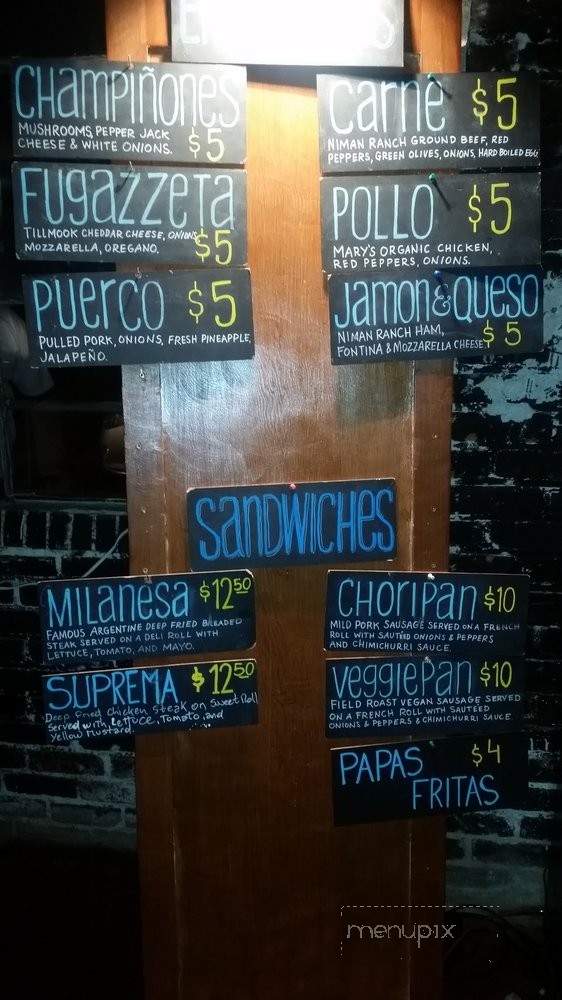 CHAMPIÑONES
MUSHROOMS, PEPPER JACK
CHEESE & WHITE ONIONS.
$5
FUGAZZETA
TILLMOOK CHEDDAR CHEESE, ONIONS,
MOZZARELLA, OREGANO.
$5
PUERCO $5
PULLED PORK, ONIONS, FRESH PINEAPPLE,
JALAPEÑO.
Carne $5
NIMAN RANCH GROUND BEEF, RED
PEPPERS, GREEN OLIVES, ONIONS, HARD BOILED EGG
POLLO $5
MARY'S ORGANIC CHICKEN,
RED PEPPERS, ONIONS.
Jamon & QUESO
NIMAN RANCH HAM,
FONTINA & MOZZARELLA CHEESE $5
SANDWICHES
MILANESA $12.50
FAMOUS ARGENTINE DEEP FRIED BREADED
STEAK SERVED ON A DELI ROLL WITH
LETTUCE, TOMATO, AND MAYO.
SUPREMA $12.50
Deep fried chicken steak on Sweet Roll
Served with Lettuce, Tomato, and
Yellow Mustard.
CHORIPAN $10
MILD PORK SAUSAGE SERVED ON A FRENCH
ROLL WITH SAUTÉED ONIONS & PEPPERS
AND CHIMICHURRI SAUCE.
VEGGIEPAN $10
FIELD ROAST VEGAN SAUSAGE SERVED
ON A FRENCH ROLL WITH SAUTEED
ONIONS & PEPPERS & CHIMICHURRI SAUCE
PAPAS $4
FRITAS
menupix